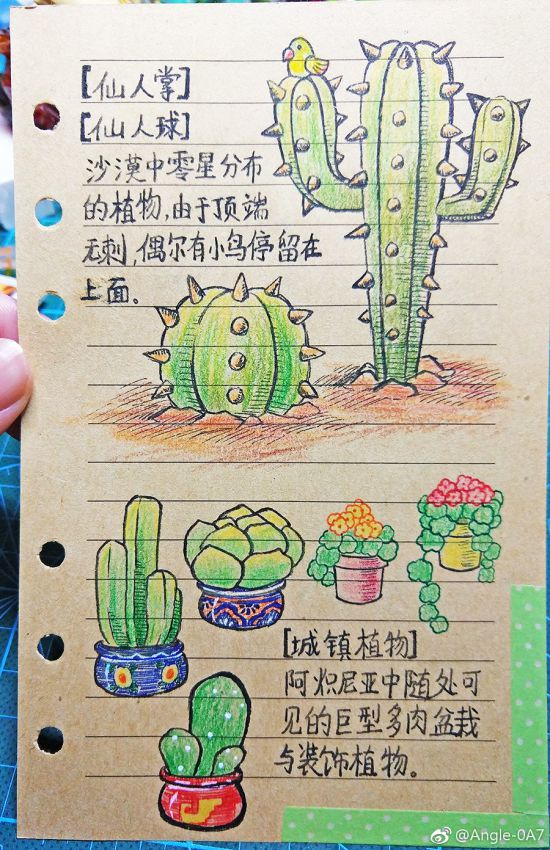 [仙人掌]
[仙人球]
沙漠中零星分布
的植物,由于顶端
无刺,偶尔有小鸟停留在
上面。
[城镇植物]
阿炽尼亚中随处可
见的巨型多肉盆栽
与装饰植物。
@Angle-0A7